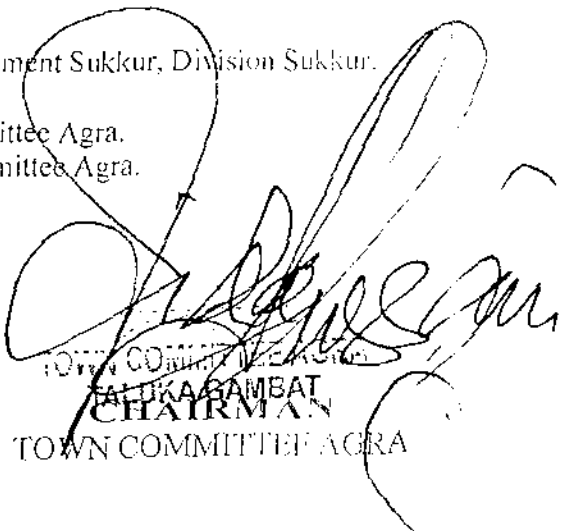 ment Sukkur, Division Sukkur.
ittee Agra.
mittee Agra.
TOWN COMMITTEE AGRA
TALUKA GAMBAT
CHAIRMAN
TOWN COMMITTEE AGRA